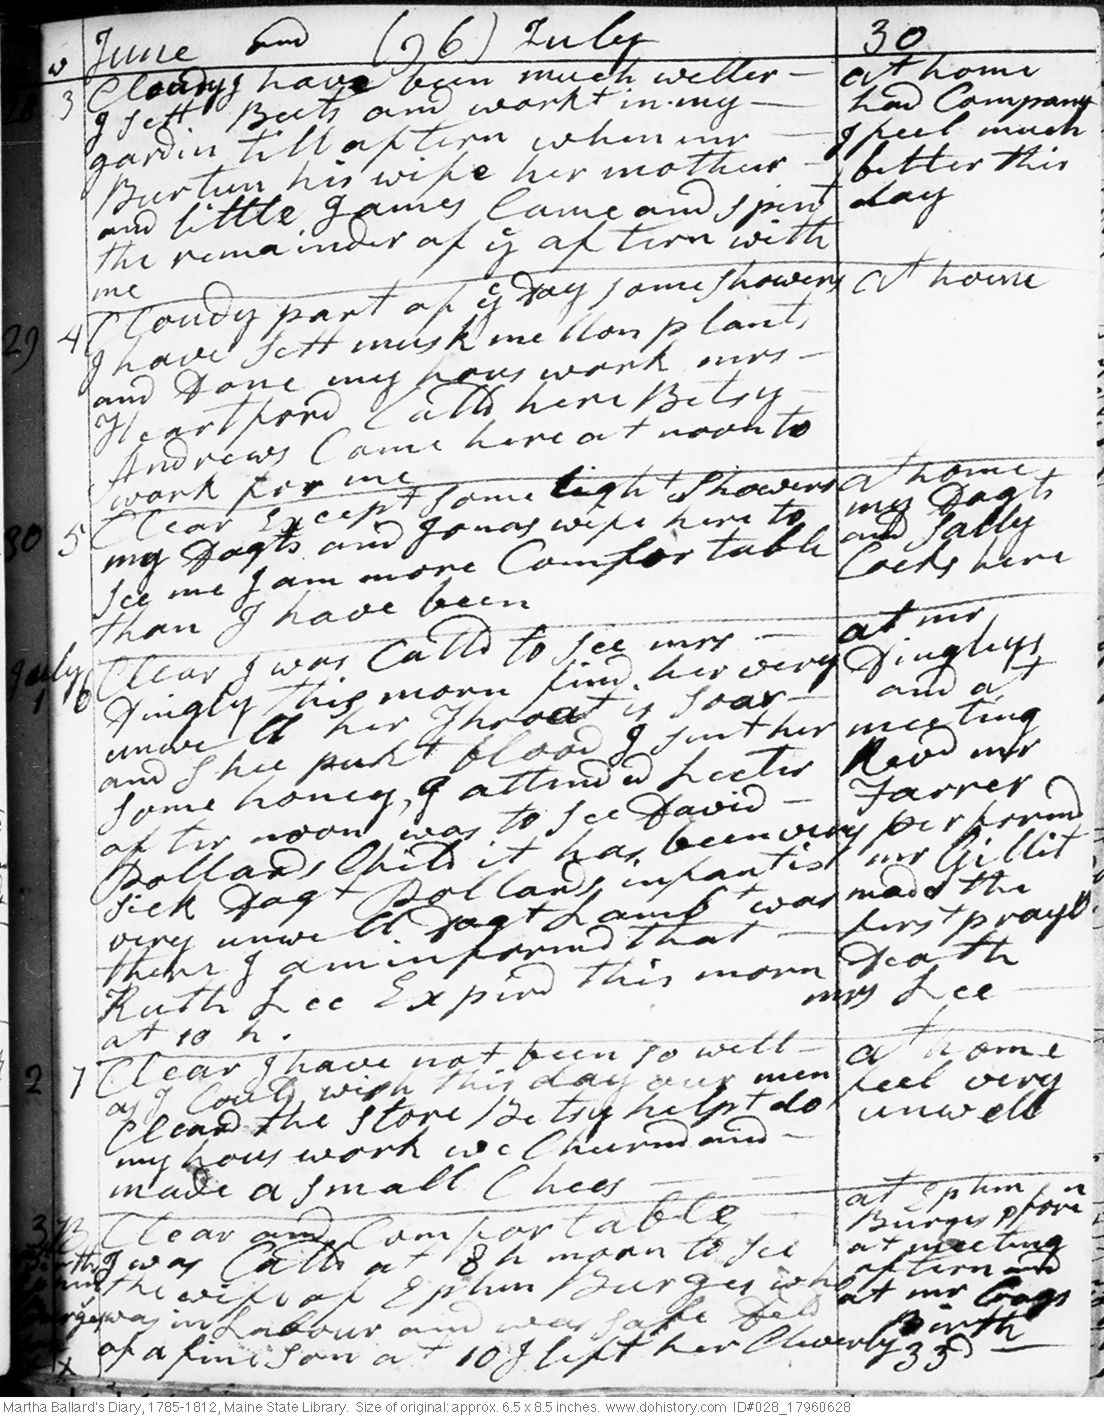 June and (96) July 30
28 3 Cloudy, have been much wetter - at home
I sett Beets and workt in my - had Company
gardin till aftern when mr - I feel much
Burtun his wife her mother - better this
and little James Came and spent day
the remainder of ye aftern with
me
29 4 Cloudy part of ye Day some showers at home
I have sett musk mellon plants
and Done my hous work mrs -
Heartford Calld here Betsy -
Andrews Came here at noon to
work for me
30 5 Clear Except some light Showers at home
my Dagts and Jonas wife here to my Dagts
see me I am more Comfortable and Sally
than I have been Cocks here
July 1 6 Clear I was Calld to see mrs - at mr
Dingly this morn find her very Dinglys
unwell her Throat is soar - and at
and shee puks blood I sent her meeting
some honey, I attended Lecter Revd mr
after noon, was to see David - Farrer
Pollards Child it has been very performd
sick Dagt Pollards infant is mr Gillit
very unwell Dagt Lambt was made the
there I am informd that - first prayr
Ruth Lee Expird this morn Death
at 10 h. mrs Lee
2 7 Clear I have not been so well - at home
as I Could wish this day our men feel very
Cleand the Store Betsy helpt do unwell
my hous work we Churnd and -
made a small Chees
3 Clear and Comfortable at Ephm
I was Calld at 8 h morn to see Burges forn
the wife of Ephm Burges who at meeting
was in Labour and was safe Deld aftern and
of a fine son at 10 I left her Cleverly at mr
Birth
33d
x
Martha Ballard's Diary, 1785-1812, Maine State Library. Size of original: approx. 6.5 x 8.5 inches. www.dohistory.com ID#028_17960628